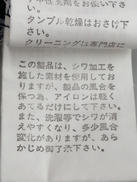 タンブル乾燥はお避け下さい。
クリーニングは専門店に
この製品は、シワ加工を
施した素材を使用してお
りますが、製品の風合を
保つ為、アイロンは軽く
あてるだけにして下さい。
また、洗濯等でシワが消
えやすくなり、多少風合
変化がありますが、あら
かじめ御了承下さい。